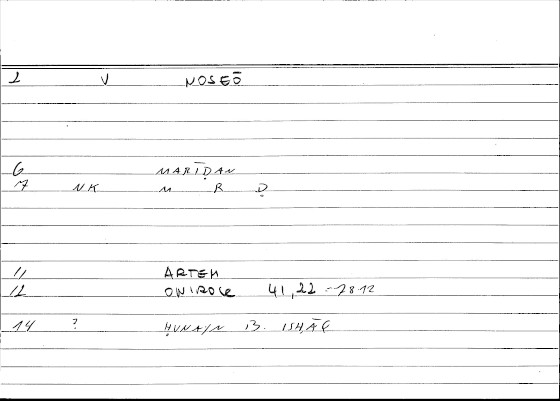 1 V NOSEŌ
6 MARĪḌAN
7 NK M R Ḍ
11 ARTEM
12 ONIROCR 41,22 = 7812
14 ? ḤUNAYN B. ISḤĀQ